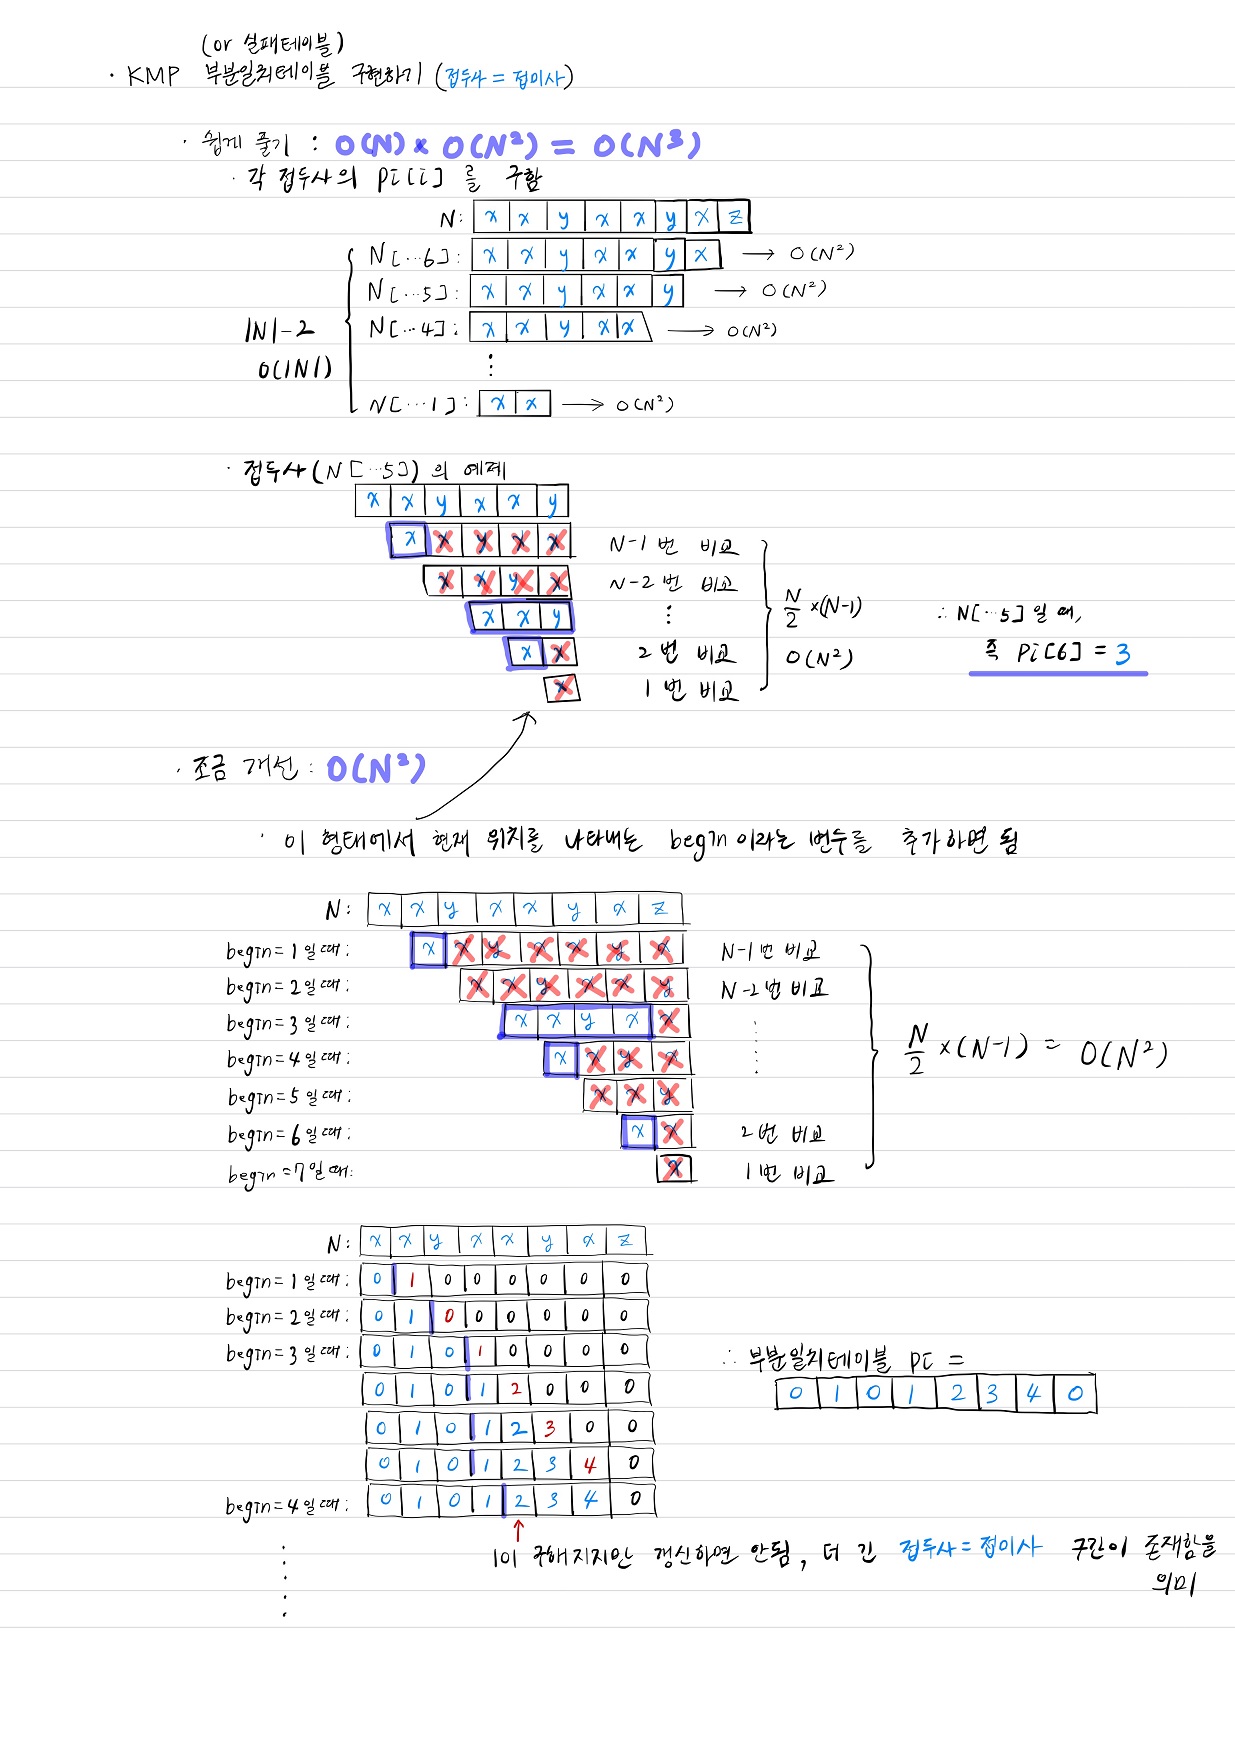 (or 실패테이블)
· KMP 부분일치테이블 구현하기 (접두사 = 접미사)
· 쉽게 풀기 : O(N) × O(N²) = O(N³)
· 각 접두사의 Pi[i] 를 구함
N: x x y x x y x z
N[···6]: x x y x x y x → O(N²)
N[···5]: x x y x x y → O(N²)
N[···4]: x x y x x → O(N²)
|N|-2
O(|N|)
⋮
N[···1]: x x → O(N²)
· 접두사(N[···5])의 예제
x x y x x y
x x y x x N-1 번 비교
x x y x N-2 번 비교
x x y ⋮
x x 2 번 비교
x 1 번 비교
N/2 ×(N-1)
O(N²)
∴ N[···5] 일 때,
즉 Pi[6] = 3
· 조금 개선 : O(N²)
· 이 형태에서 현재 위치를 나타내는 begin 이라는 변수를 추가하면 됨
N: x x y x x y x z
begin=1일때: x x y x x y x N-1번 비교
begin=2일때: x x y x x y N-2번 비교
begin=3일때: x x y x x
begin=4일때: x x y x
begin=5일때: x x y
begin=6일때: x x 2번 비교
begin=7일때: x 1번 비교
N/2 ×(N-1) = O(N²)
N: x x y x x y x z
begin=1일때: 0 1 0 0 0 0 0 0
begin=2일때: 0 1 0 0 0 0 0 0
begin=3일때: 0 1 0 1 0 0 0 0
0 1 0 1 2 0 0 0
0 1 0 1 2 3 0 0
0 1 0 1 2 3 4 0
begin=4일때: 0 1 0 1 2 3 4 0
∴ 부분일치테이블 Pi =
0 1 0 1 2 3 4 0
1이 구해지지만 갱신하면 안됨, 더 긴 접두사=접미사 구간이 존재함을
의미